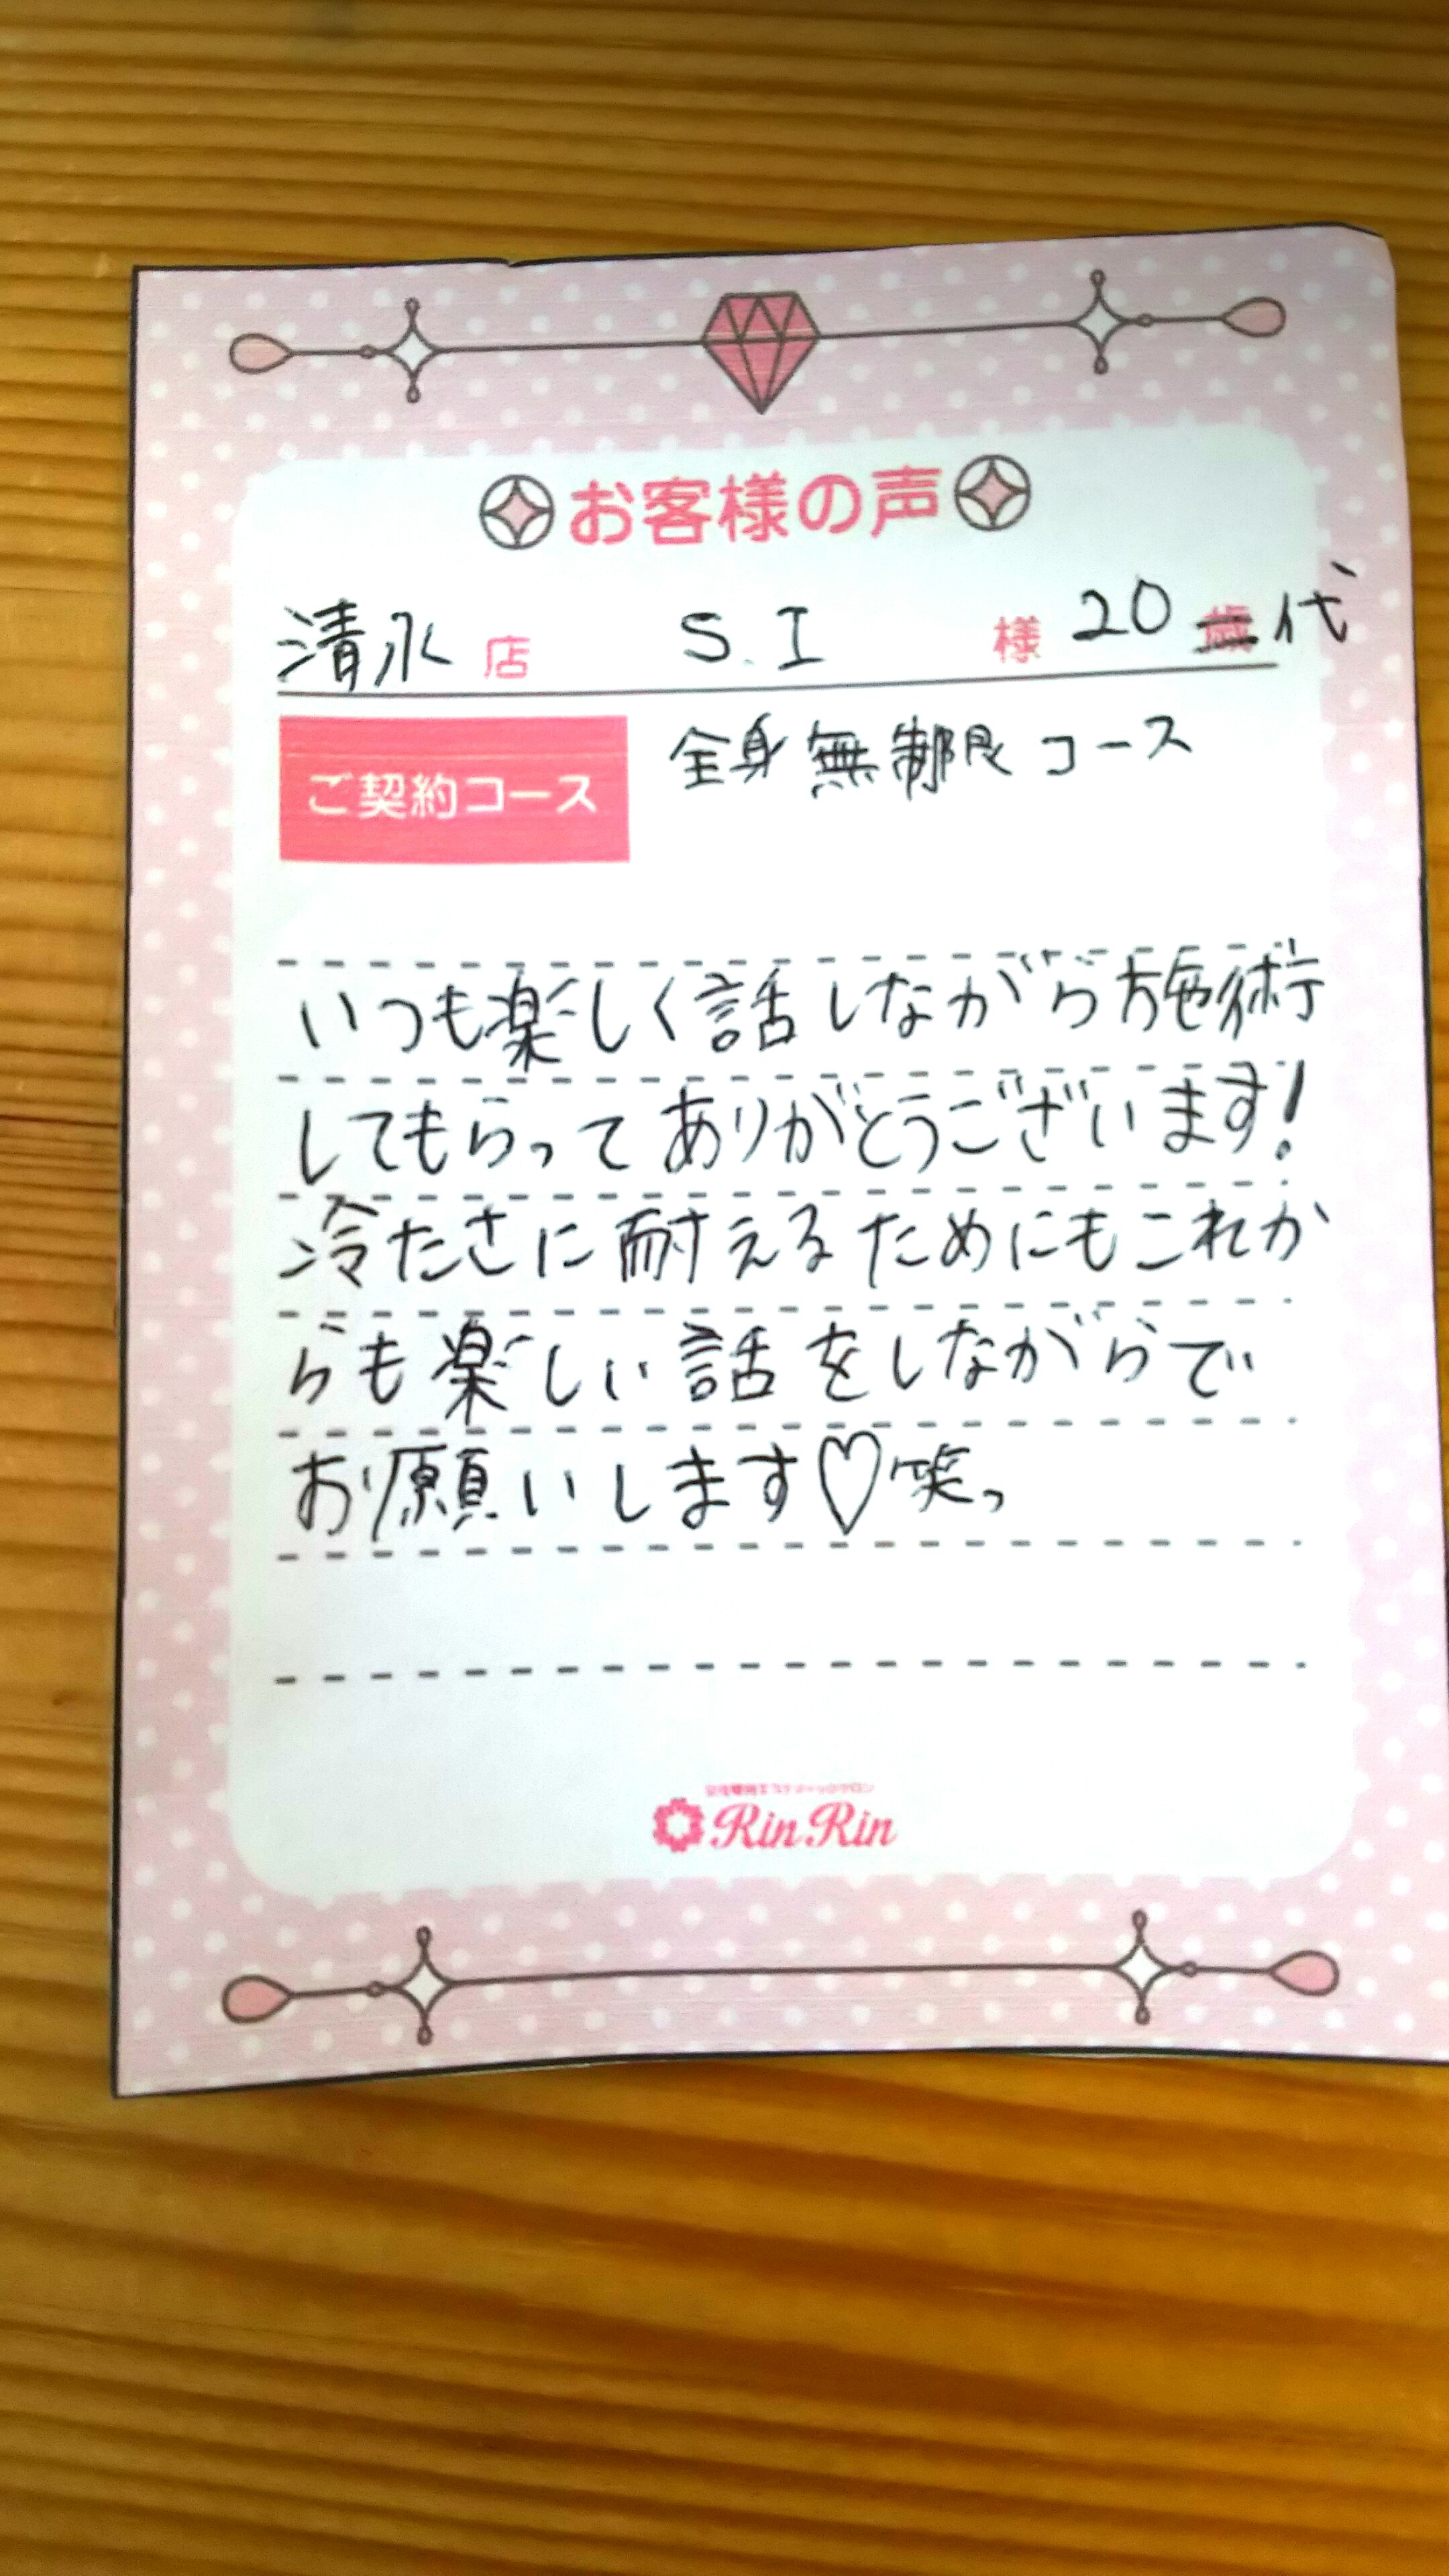 お客様の声
清水店 S.I 様 20歳代
ご契約コース 全身無制限コース
いつも楽しく話しながら施術
してもらってありがとうございます!
冷たさに耐えるためにもこれか
らも楽しい話をしながらで
お願いします♡笑っ
RinRin